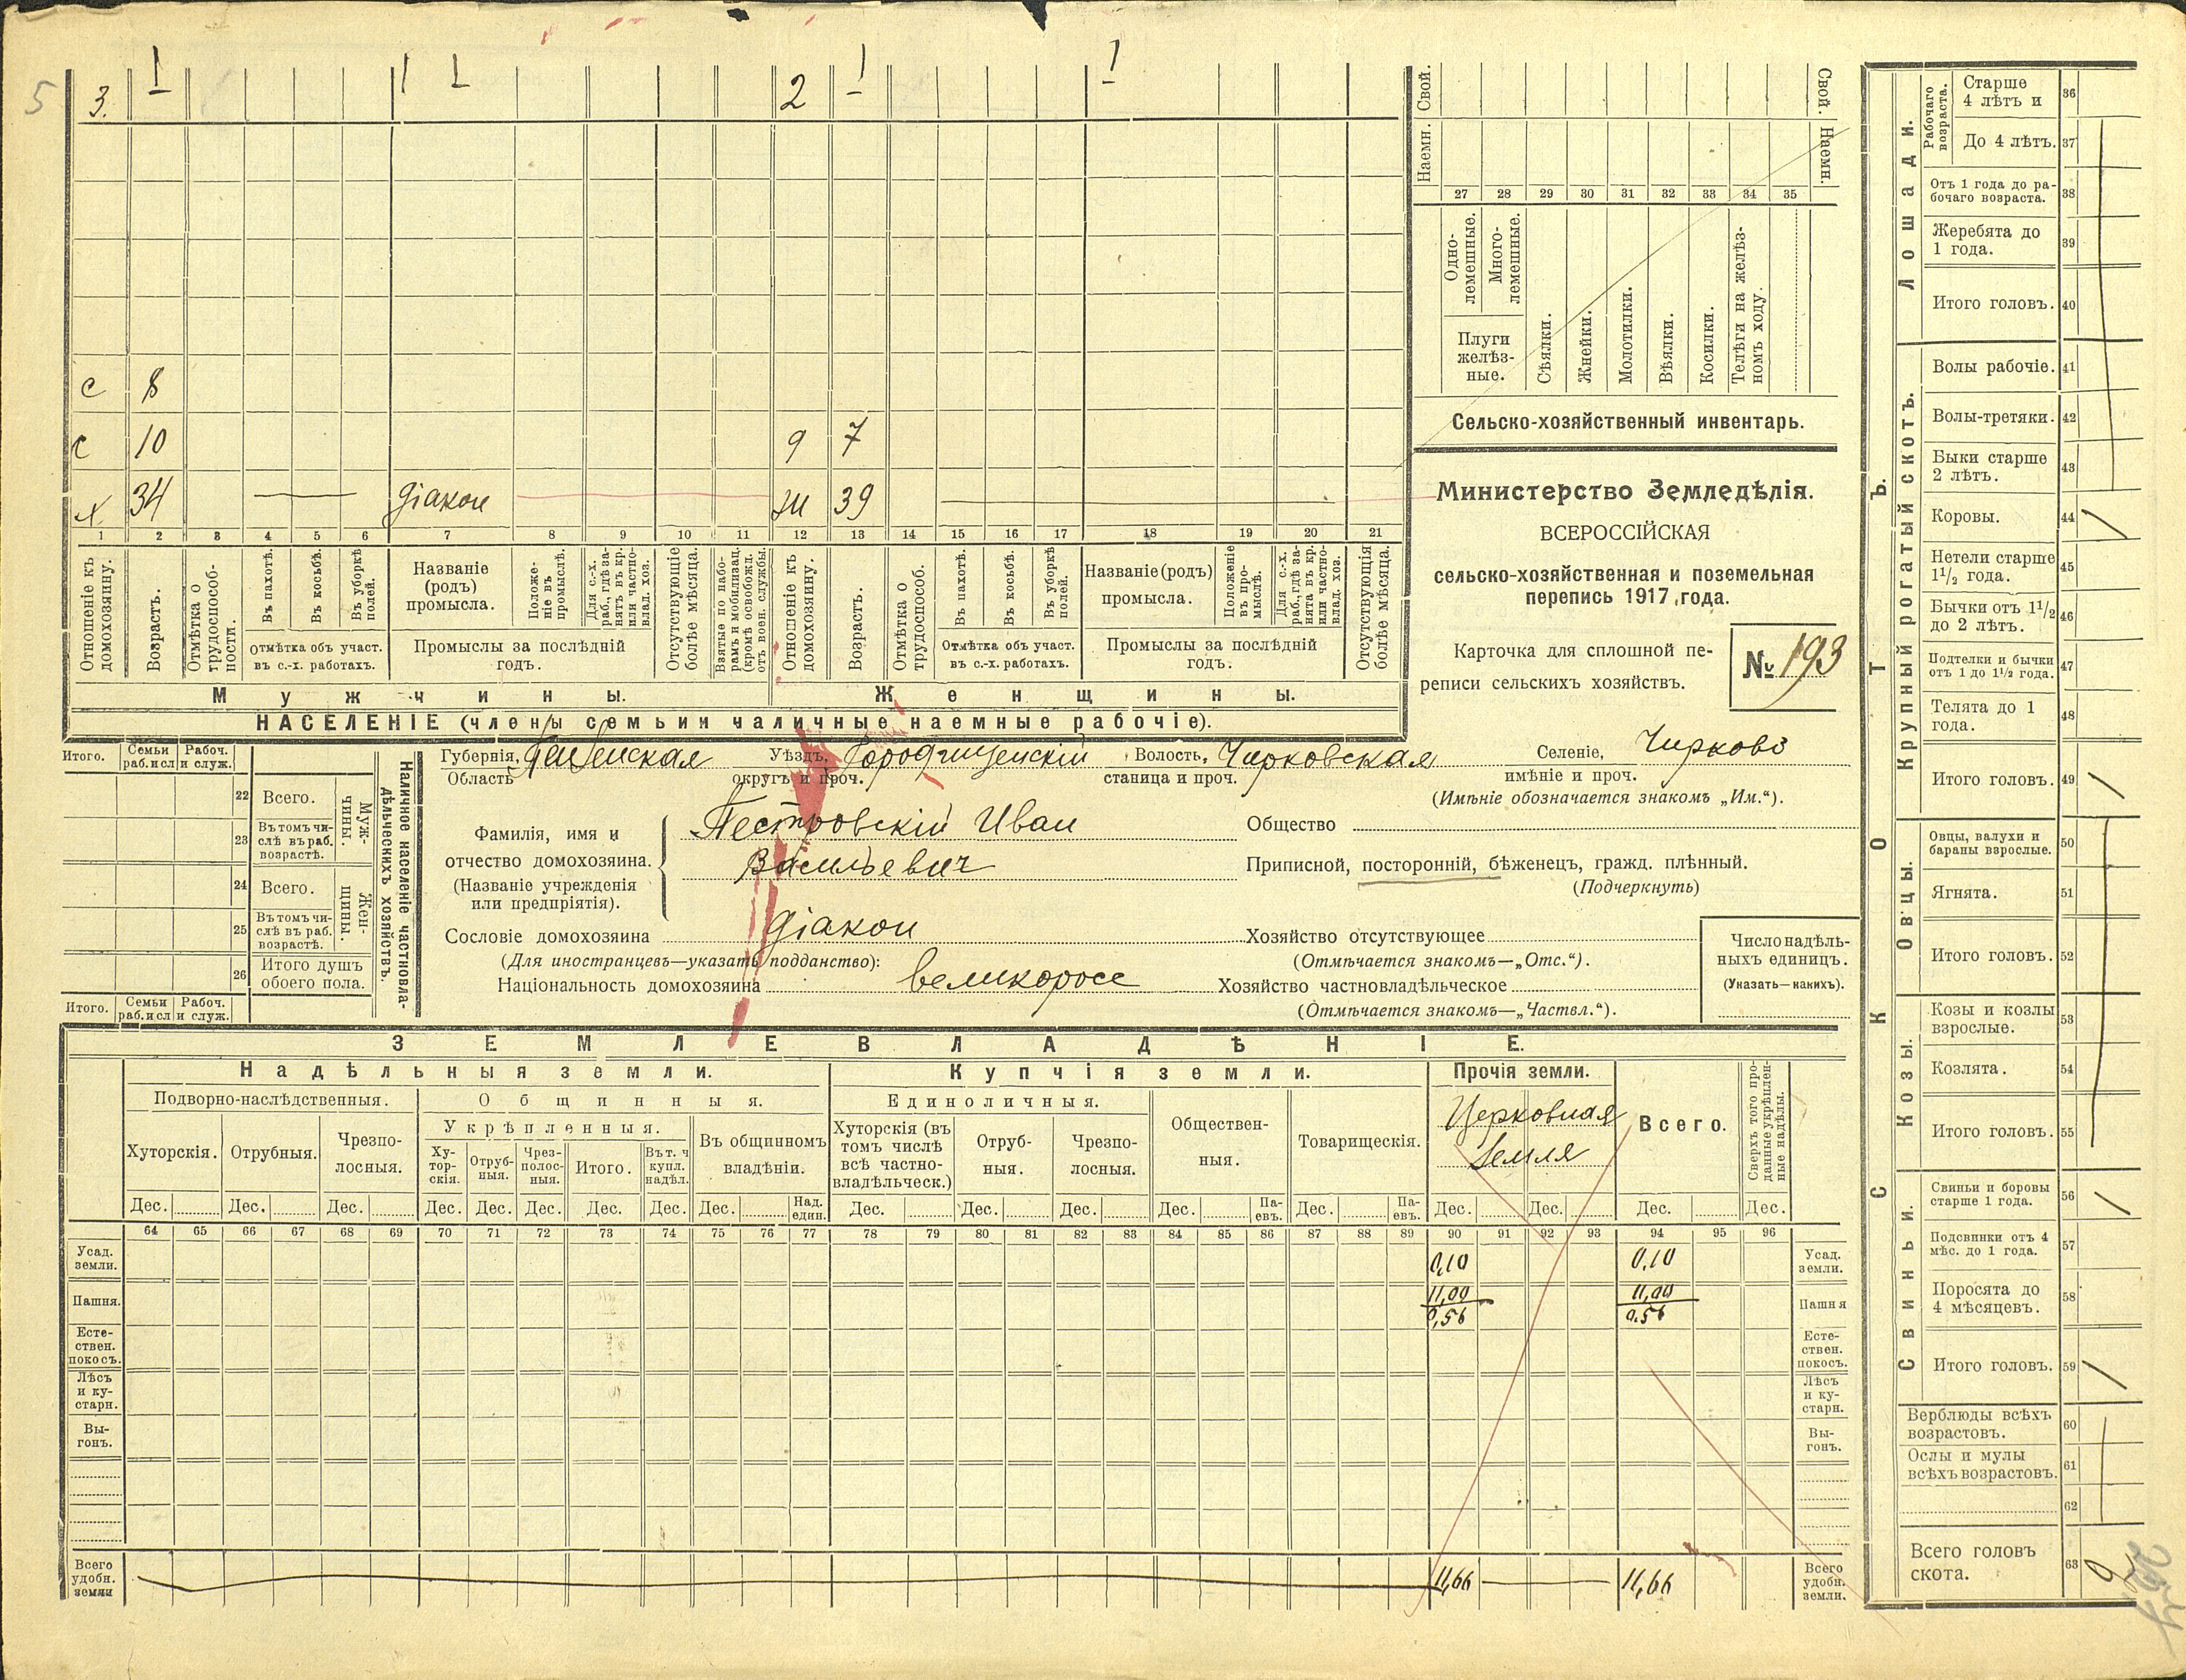 5
3. 1 1 1 2 1 1
с 8
с 10 9 7
х. 34 діакон ж 39
1 2 3 4 5 6 7 8 9 10 11 12 13 14 15 16 17 18 19 20 21
Отношеніе къ домохозяину.
Возрастъ.
Отмѣтка о трудоспособ-
ности.
Въ пахотѣ.
Въ косьбѣ.
Въ уборкѣ полей.
Отмѣтка объ участ.
въ с.-х. работахъ.
Названіе
(родъ)
промысла.
Положе-
ніе въ
промыслѣ.
Для с.-х.
раб., гдѣ за-
нятъ въ кр.
или частно-
влад. хоз.
Промыслы за послѣдній
годъ.
Отсутствующіе
болѣе мѣсяца.
Взятые по набо-
рамъ и мобилизац.
(кромѣ освобожд.
отъ воен. службы.
Отношеніе къ
домохозяину.
Возрастъ.
Отмѣтка о
трудоспособ.
Въ пахотѣ.
Въ косьбѣ.
Въ уборкѣ
полей.
Отмѣтка объ участ.
въ с.-х. работахъ.
Названіе (родъ)
промысла.
Положеніе
въ про-
мыслѣ.
Для с.-х.
раб., гдѣ за-
нята въ кр.
или частно-
влад. хоз.
Промыслы за послѣдній
годъ.
Отсутствующія
болѣе мѣсяца.
Мужчины. Женщины.
НАСЕЛЕНІЕ (члены семьи и наличные наемные рабочіе).
Свой. Свой.
Наемн. Наемн.
27 28 29 30 31 32 33 34 35
Одно-
лемешные.
Много-
лемешные.
Плуги
желѣз-
ные.
Сѣялки.
Жнейки.
Молотилки.
Вѣялки.
Косилки.
Телѣги на желѣз-
номъ ходу.
Сельско-хозяйственный инвентарь.
Министерство Земледѣлія.
ВСЕРОССІЙСКАЯ
сельско-хозяйственная и поземельная
перепись 1917 года.
Карточка для сплошной пе-
реписи сельскихъ хозяйствъ.
№ 193
Итого. Семьи раб. и сл. Рабоч. и служ.
22 Всего.
23 Въ томъ чи-
слѣ въ раб.
возрастѣ.
Муж-
чины.
24 Всего.
25 Въ томъ чи-
слѣ въ раб.
возрастѣ.
Жен-
щины.
26 Итого душъ
обоего пола.
Итого. Семьи раб. и сл. Рабоч. и служ.
Наличное населеніе частновла-
дѣльческихъ хозяйствъ.
Губернія, Пензенская Уѣздъ, Городищенскій Волость, Чирковская Селеніе, Чирково
Область округъ и проч. станица и проч. имѣніе и проч.
(Имѣніе обозначается знакомъ „Им.“).
Фамилія, имя и
отчество домохозяина.
(Названіе учрежденія
или предпріятія).
Пестровскій Иван
Васильевич
Общество
Приписной, посторонній, бѣженецъ, гражд. плѣнный.
(Подчеркнуть)
Сословіе домохозяина діакон Хозяйство отсутствующее
(Для иностранцевъ—указать подданство): (Отмѣчается знакомъ—„Отс.“).
Національность домохозяина великоросс Хозяйство частновладѣльческое
(Отмѣчается знакомъ—„Частвл.“).
Число надѣль-
ныхъ единицъ.
(Указать—какихъ).
ЗЕМЛЕВЛАДѢНІЕ.
Надѣльныя земли. Купчія земли. Прочія земли.
Подворно-наслѣдственныя. Общинныя. Единоличныя.
Укрѣпленныя.
Хуторскія. Отрубныя. Чрезпо-
лосныя.
Ху-
тор-
скія.
Отруб-
ныя.
Чрез-
полос-
ныя.
Итого.
Въ т. ч.
купл.
надѣл.
Въ общинномъ
владѣніи.
Хуторскія (въ
томъ числѣ
всѣ частно-
владѣльческ.)
Отруб-
ныя.
Чрезпо-
лосныя.
Обществен-
ныя.
Товарищескія.
Церковная
земля
Всего.
Сверхъ того про-
данные укрѣплен-
ные надѣлы.
Дес. Дес. Дес. Дес. Дес. Дес. Дес. Дес. Дес. Над. един. Дес. Дес. Дес. Дес. Па-
евъ. Дес. Па-
евъ. Дес. Дес. Дес. Дес.
64 65 66 67 68 69 70 71 72 73 74 75 76 77 78 79 80 81 82 83 84 85 86 87 88 89 90 91 92 93 94 95 96
Усад.
земли. 0,10 0,10 Усад.
земли.
Пашня. 11,00 11,00 Пашня
0,56 0,56
Есте-
ствен.
покосъ. Есте-
ствен.
покосъ.
Лѣсъ
и ку-
старн. Лѣсъ
и ку-
старн.
Вы-
гонъ. Вы-
гонъ.
Всего
удобн.
земли 11,66 11,66 Всего
удобн.
земли.
СКОТЪ.
Лошади.
Рабочаго
возраста.
Старше
4 лѣтъ и 36
До 4 лѣтъ. 37
Отъ 1 года до ра-
бочаго возраста. 38
Жеребята до
1 года. 39
Итого головъ. 40
Крупный рогатый скотъ.
Волы рабочіе. 41
Волы-третяки. 42
Быки старше
2 лѣтъ. 43
Коровы. 44 1
Нетели старше
1½ года. 45
Бычки отъ 1½
до 2 лѣтъ. 46
Подтелки и бычки
отъ 1 до 1½ года. 47
Телята до 1
года. 48
Итого головъ. 49 1
Овцы.
Овцы, валухи и
бараны взрослые. 50
Ягнята. 51
Итого головъ. 52
Козы.
Козы и козлы
взрослые. 53
Козлята. 54
Итого головъ. 55
Свиньи.
Свиньи и боровы
старше 1 года. 56 1
Подсвинки отъ 4
мѣс. до 1 года. 57
Поросята до
4 мѣсяцевъ. 58
Итого головъ. 59 1
Верблюды всѣхъ
возрастовъ. 60
Ослы и мулы
всѣхъ возрастовъ. 61
62
Всего головъ
скота. 63 2